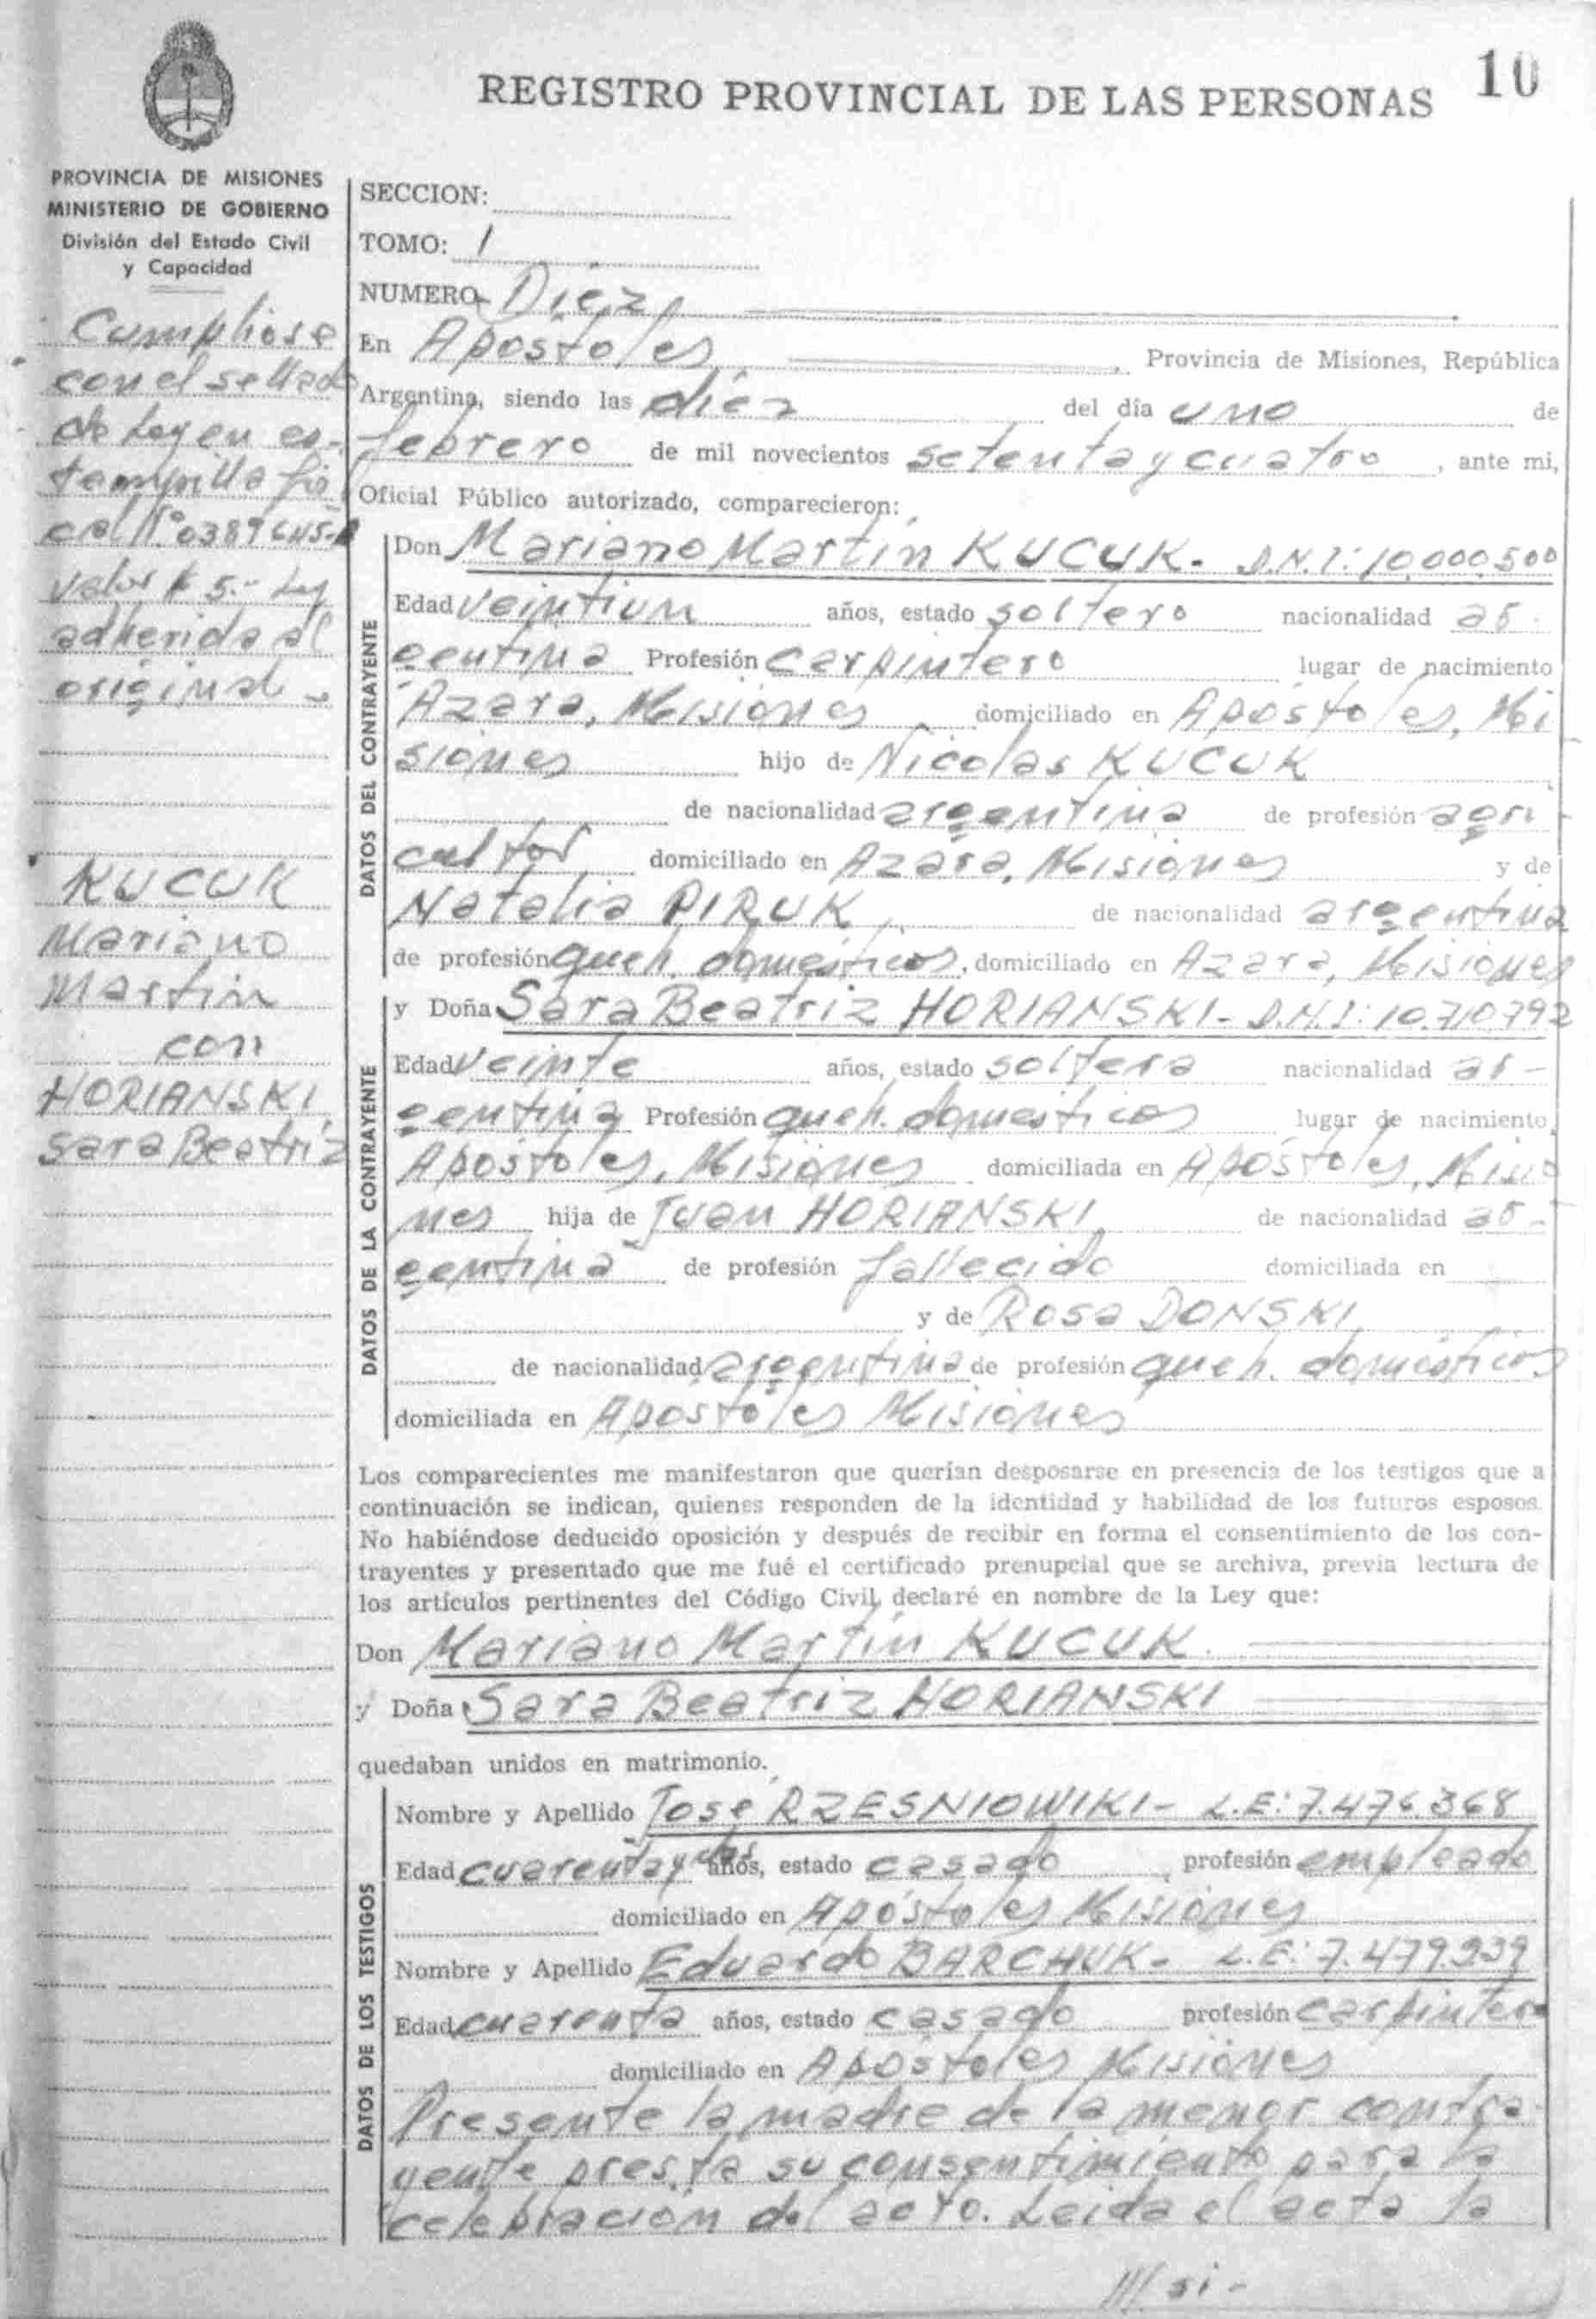 REGISTRO PROVINCIAL DE LAS PERSONAS
10
PROVINCIA DE MISIONES
MINISTERIO DE GOBIERNO
División del Estado Civil
y Capacidad
Cumpliose
con el sellado
de Ley en es-
tampilla fis
cal N° 0389645-A
valor $ 5.- Ley
adherida al
original -
KUCUK
Mariano
Martin
con
HORIANSKI
Sara Beatriz
SECCION:
TOMO: 1
NUMERO Diez
En Apostoles, Provincia de Misiones, República
Argentina, siendo las diez del día uno de
febrero de mil novecientos setenta y cuatro, ante mi,
Oficial Público autorizado, comparecieron:
DATOS DEL CONTRAYENTE
Don Mariano Martin KUCUK. D.N.I: 10.000.500
Edad veintiun años, estado soltero nacionalidad ar-
gentina Profesión carpintero lugar de nacimiento
Azara, Misiones domiciliado en Apóstoles, Mi
siones hijo de Nicolas KUCUK
de nacionalidad argentina de profesión agri
cultor domiciliado en Azara, Misiones y de
Natalia PIRUK, de nacionalidad argentina
de profesión queh. domésticos, domiciliado en Azara, Misiones
DATOS DE LA CONTRAYENTE
y Doña Sara Beatriz HORIANSKI- D.N.I: 10.710.792
Edad veinte años, estado soltera nacionalidad ar-
gentina Profesión queh. domesticos lugar de nacimiento
Apóstoles, Misiones domiciliada en Apóstoles, Misio
nes hija de Juan HORIANSKI, de nacionalidad ar-
gentina de profesión fallecido domiciliada en
y de Rosa DONSKI
de nacionalidad argentina de profesión queh. domésticos
domiciliada en Apostoles Misiones
Los comparecientes me manifestaron que querían desposarse en presencia de los testigos que a
continuación se indican, quienes responden de la identidad y habilidad de los futuros esposos.
No habiéndose deducido oposición y después de recibir en forma el consentimiento de los con-
trayentes y presentado que me fué el certificado prenupcial que se archiva, previa lectura de
los artículos pertinentes del Código Civil, declaré en nombre de la Ley que:
Don Mariano Martin KUCUK.
y Doña Sara Beatriz HORIANSKI
quedaban unidos en matrimonio.
DATOS DE LOS TESTIGOS
Nombre y Apellido José RZESNIOWIKI- L.E: 7.476.368
Edad cuarenta y dos años, estado casado, profesión empleado
domiciliado en Apóstoles Misiones
Nombre y Apellido Eduardo BARCHUK- L.E: 7.479.939
Edad cuarenta años, estado casado profesión carpintero
domiciliado en Apostoles Misiones
Presente la madre de la menor contra
yente presta su consentimiento para la
celebración del acto. Leida el acta la
///si-